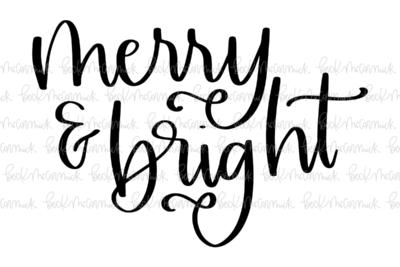 merry
& bright